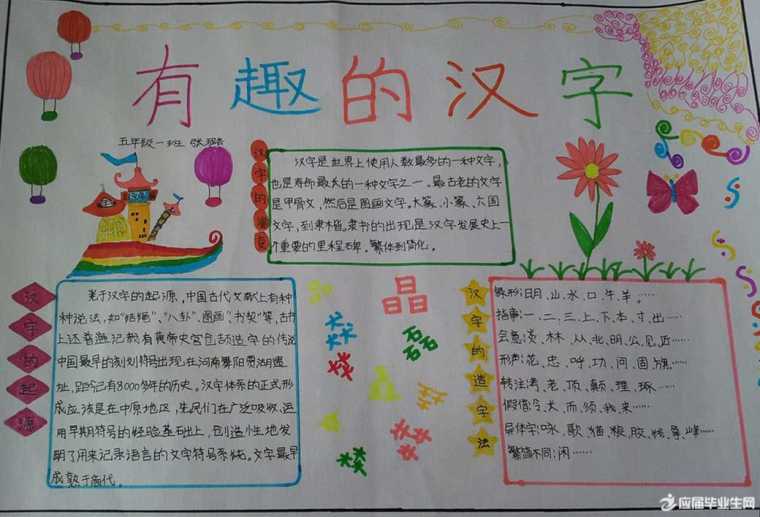 有趣的汉字
五年级一班
汉字的
汉字是世界上使用人数最多的一种文字,
也是寿命最长的一种文字之一。最古老的文字
是甲骨文,然后是图画文字。大篆、小篆、六国
文字,到隶楷。隶书的出现,是汉字发展史上一
个重要的里程碑。繁体到简化。
汉字的起源
关于汉字的起源,中国古代文献上有种
种说法,如“结绳”、“八卦”、“图画”、“书契”等,古书
上还普遍记载有黄帝史官仓颉造字的传说
中国最早的刻划符号出现在河南舞阳贾湖遗
址,距今已有8000多年的历史。汉字体系的正式形
成应该是在中原地区,先民们在广泛吸收、运
用早期符号的经验基础上,创造性地发
明了用来记录语言的文字符号系统。文字最早
成熟于商代。
晶
汉字的造字法
象形:日、月、山、水、口、牛、羊……
指事:一、二、三、上、下、本、寸、出……
会意:淡、林、从、北、明、公、见、近……
形声:花、忠、呼、功、问、固、旗……
转注:涛、老、顶、颠、理、琢……
假借:令、大、而、须、我、来……
异体字:咏、歌、猫、粮、胶、线、峰……
繁简不同:闲……
应届毕业生网